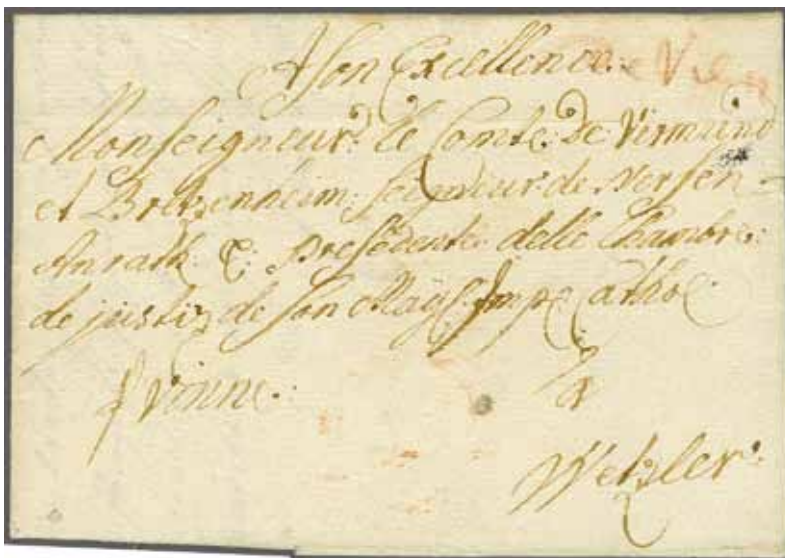 A Son Excellence
Monseigneur le Comte De Virmund
et Bretzenheim, seigneur de Nersen
Anrath & Presedente delle Chambre
de justiz de son May: Imp: Cathol
Vienne
a
Wetzler